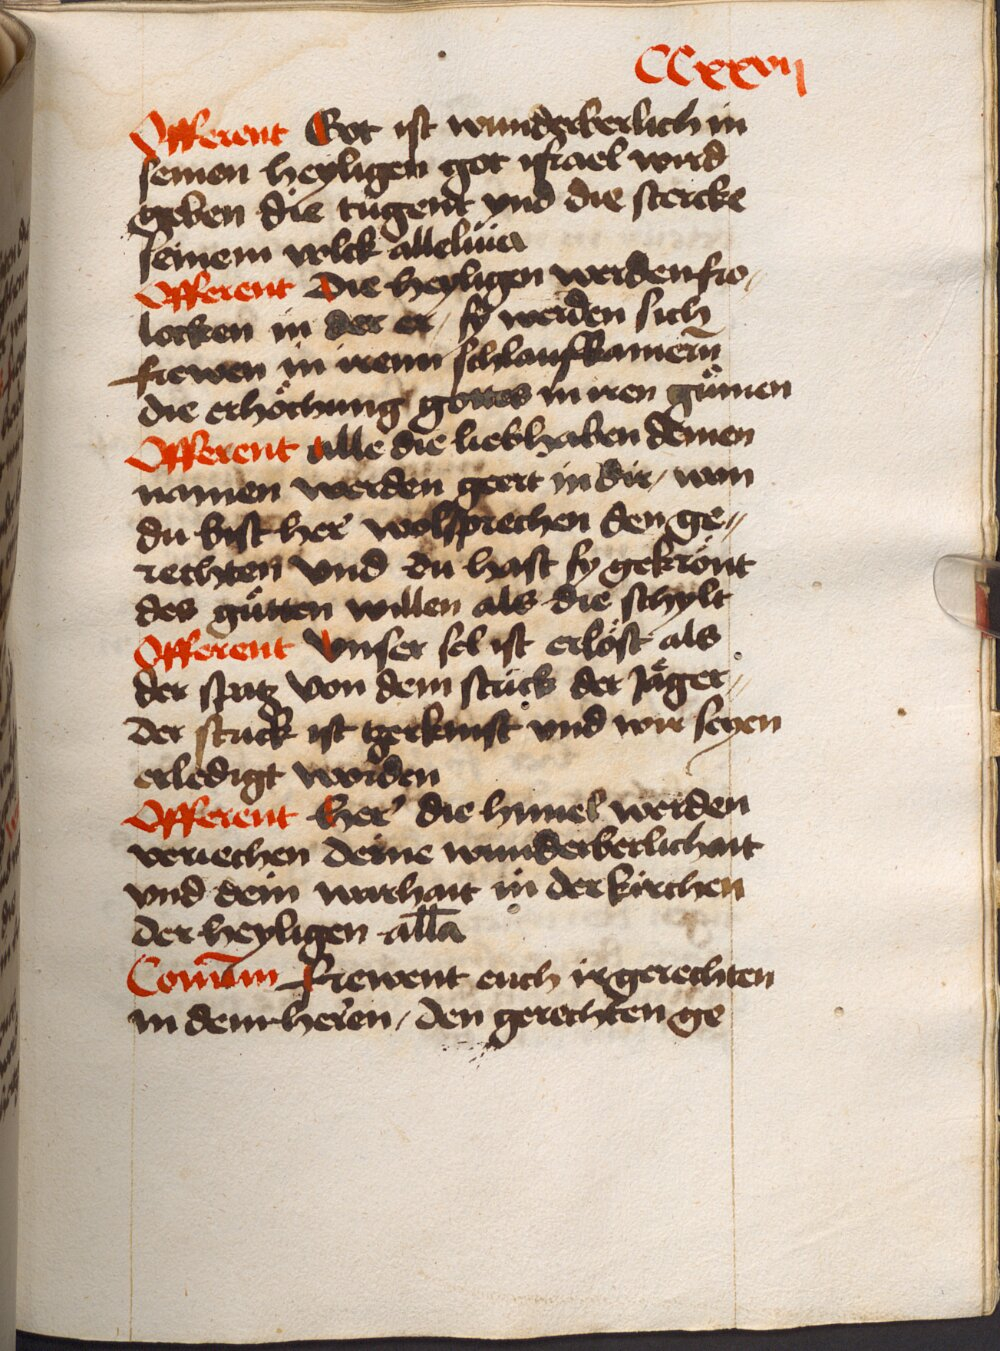 CCxxvij
Offerent Got ist wunderberlich in
seinen heyligen got israel wird
geben die tugent vnd die stercke
seinem volck alleluia
Offerent Die heyligen werden fro-
locken in der er / sy werden sich
frewen in irenn schlaufkamern̄
die erhöchung gottes in iren gůmen
Offerent Alle die liebhaben deinen
namen werden geert in dir / wan
du bist her wolsprechen den ge-
rechten vnd du hast sy gekrönt
des gůtten willen als die schylt
Offerent Vnser sel ist erlöst als
der spatz von dem strick der Jäger
der strick ist zerknist vnd wir seyen
erledigt worden
Offerent Her die himel werden
veriechen deine wunderberlichait
vnd dein warhait in der kirchen
der heyligen all̄a
Com̄un frewent euch ir gerechten
in dem herren / den gerechten ge